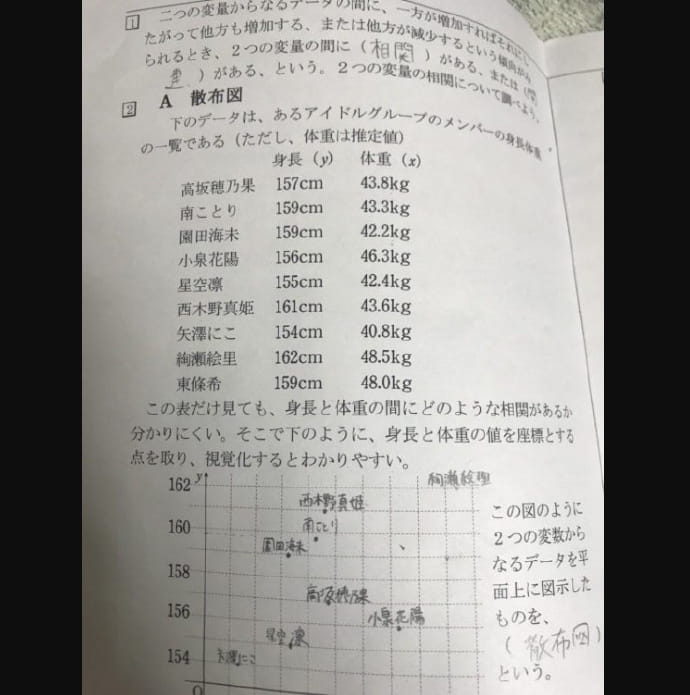 1 二つの変量からなるデータの間に、一方が増加すればそれにし
たがって他方も増加する、または他方が減少するという傾向がみ
られるとき、2つの変量の間に（相関）がある、または（関
連）がある、という。2つの変量の相関について調べよう。
2 A 散布図
下のデータは、あるアイドルグループのメンバーの身長体重
の一覧である（ただし、体重は推定値）
身長（y） 体重（x）
高坂穂乃果 157cm 43.8kg
南ことり 159cm 43.3kg
園田海未 159cm 42.2kg
小泉花陽 156cm 46.3kg
星空凛 155cm 42.4kg
西木野真姫 161cm 43.6kg
矢澤にこ 154cm 40.8kg
絢瀬絵里 162cm 48.5kg
東條希 159cm 48.0kg
この表だけ見ても、身長と体重の間にどのような相関があるか
分かりにくい。そこで下のように、身長と体重の値を座標とする
点を取り、視覚化するとわかりやすい。
y
162 絢瀬絵理
西木野真姫
160 南ことり
園田海未
158
156 小泉花陽
星空凛
154 矢澤にこ
O
この図のように
2つの変数から
なるデータを平
面上に図示した
ものを、
（散布図）
という。